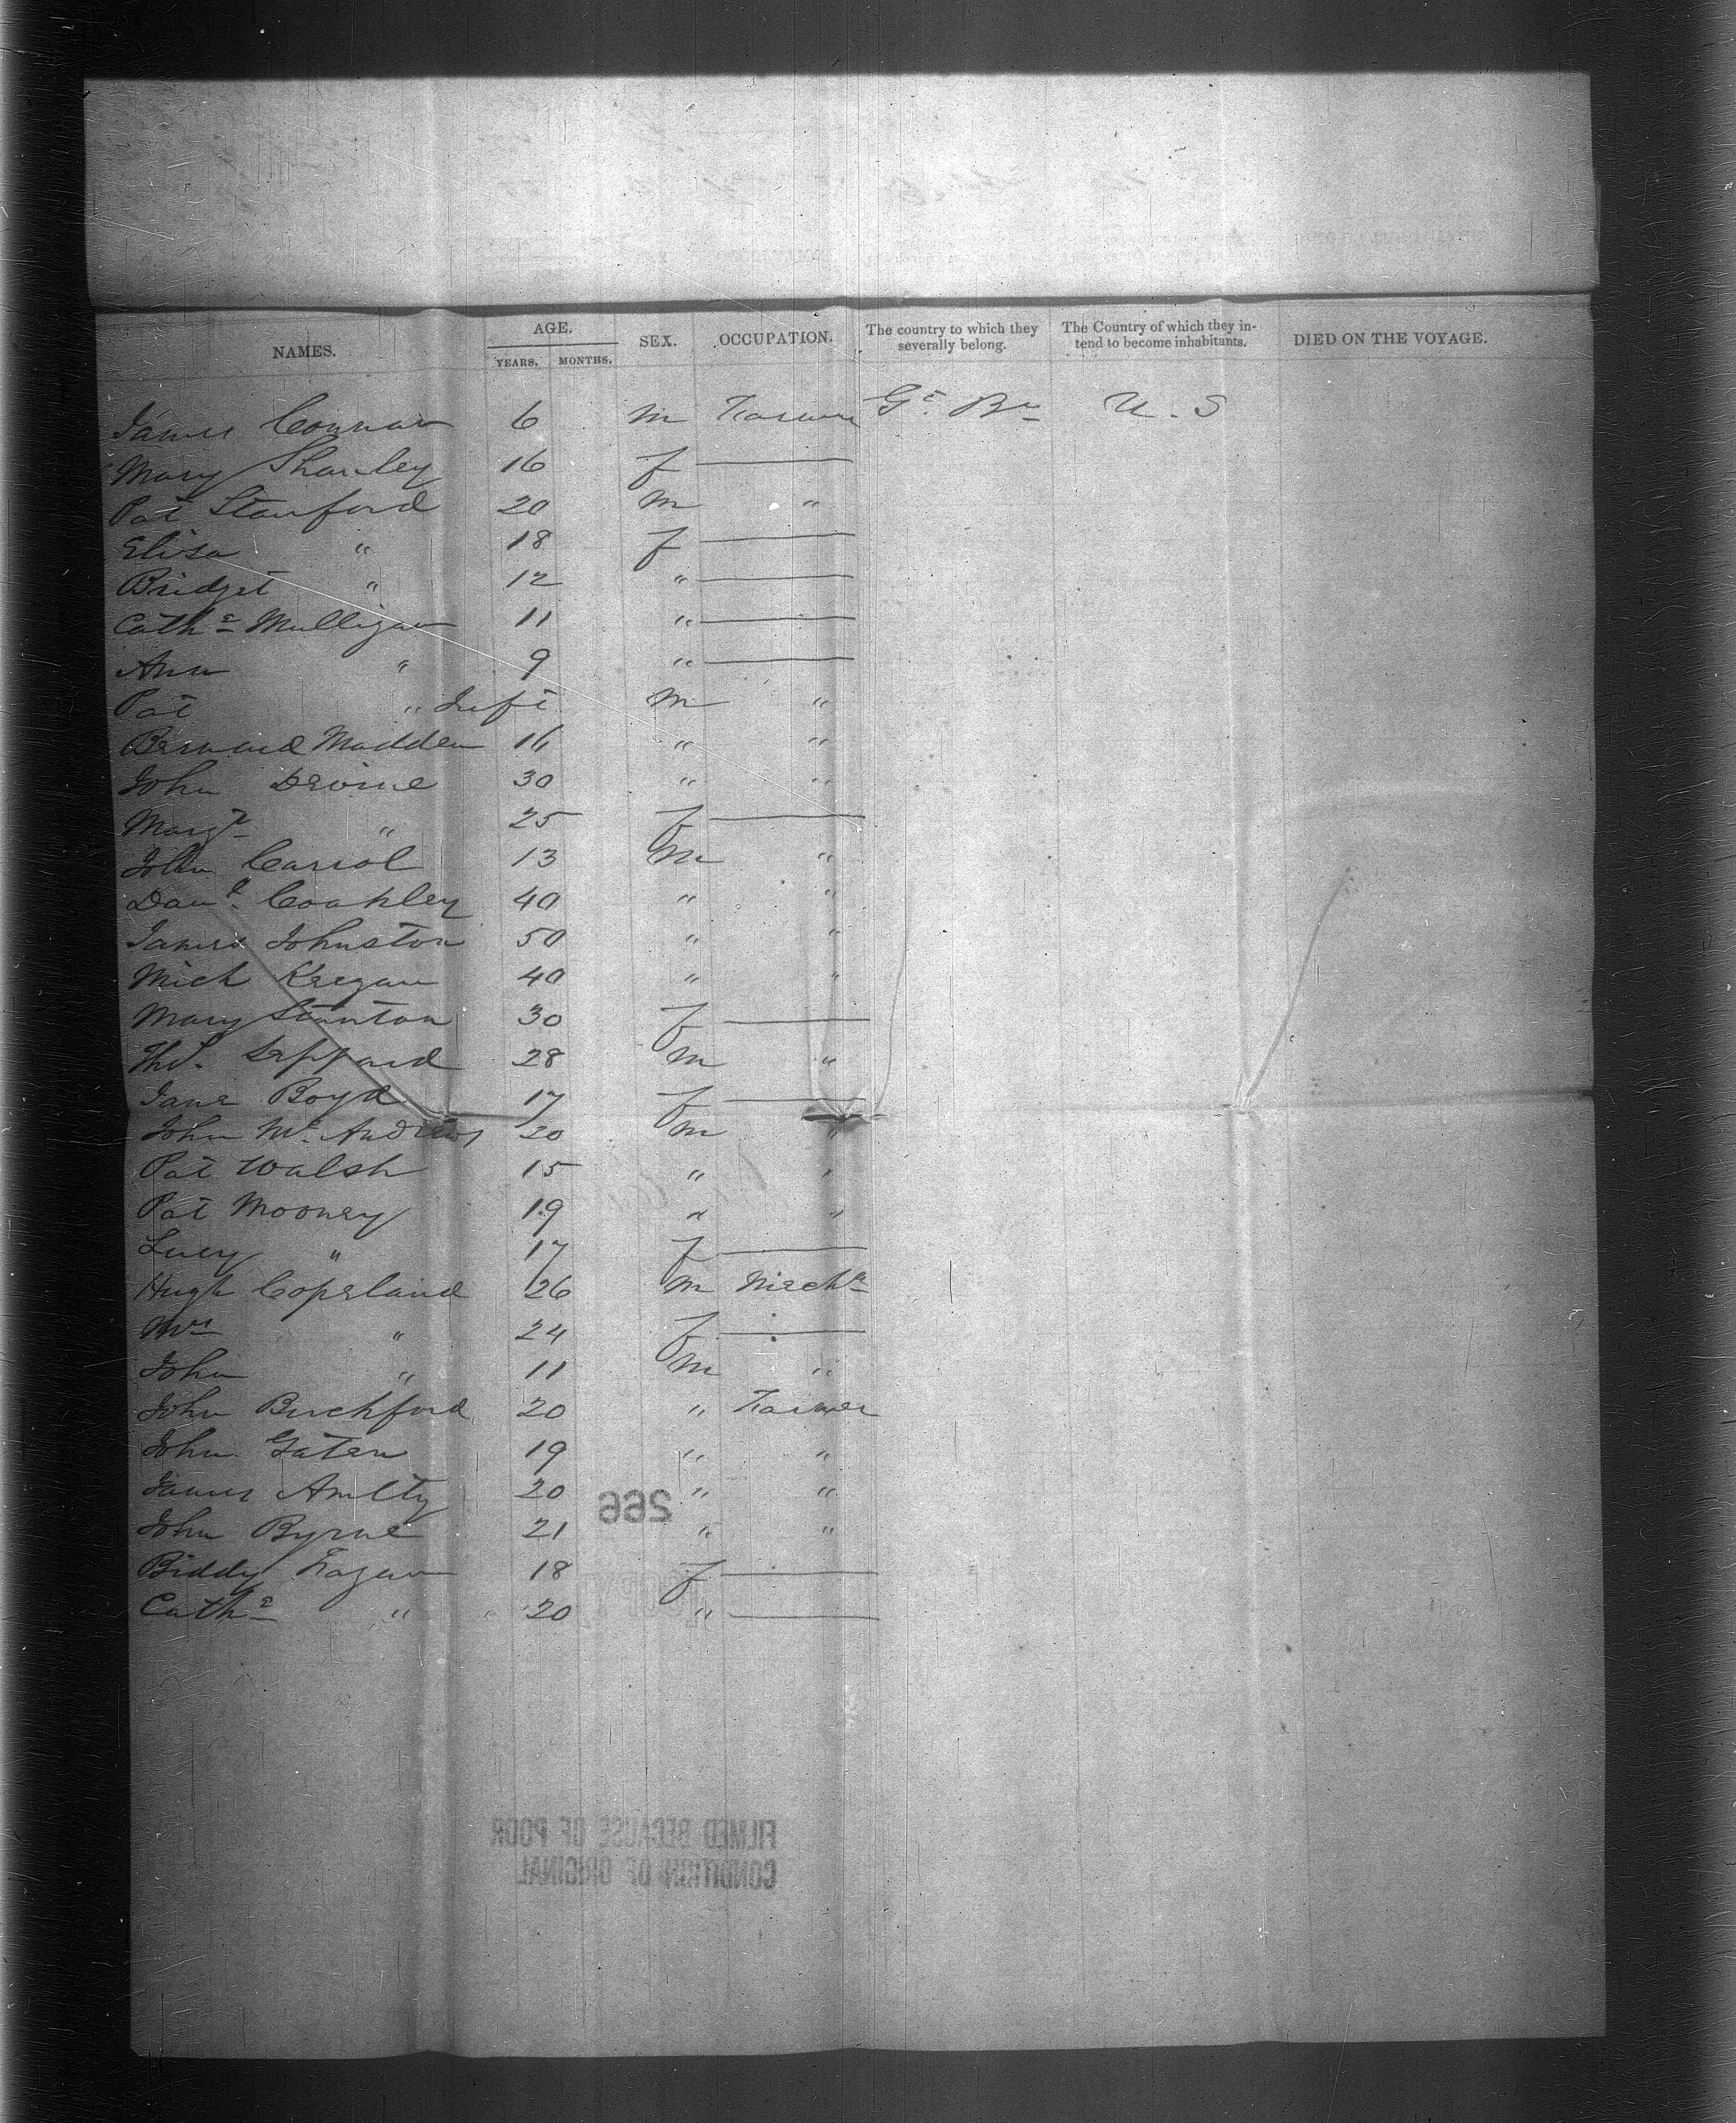 NAMES. AGE. YEARS. MONTHS. SEX. OCCUPATION. The country to which they severally belong. The Country of which they intend to become inhabitants. DIED ON THE VOYAGE.
James Connar 6 m Farmer Gt. Bn U.S
Mary Shanley 16 f —
Pat Stanford 20 m "
Elisa " 18 f —
Bridget " 12 " —
Cathe Mulligan 11 " —
Ann " 9 " —
Pat " Inft m "
Bernard Madden 16 " "
John Devine 30 " "
Margt " 25 f —
John Carrol 13 m "
Danl. Coakley 40 " "
James Johnston 50 " "
Mich Keegan 40 " "
Mary Stanton 30 f —
Thos. Seppard 28 m "
Jane Boyd 17 f —
John Mc Andrews 20 m "
Pat Walsh 15 " "
Pat Mooney 19 " "
Lucy " 17 f —
Hugh Copeland 26 m Mechc
Mrs " 24 f —
John " 11 m "
John Burchford 20 " Farmer
John Gaten 19 " "
James 20 " "
John Byrne 21 " "
Biddy Fagan 18 f —
Cathe " 20 " —
566
COPY
FILMED BECAUSE OF POOR
CONDITION OF ORIGINAL